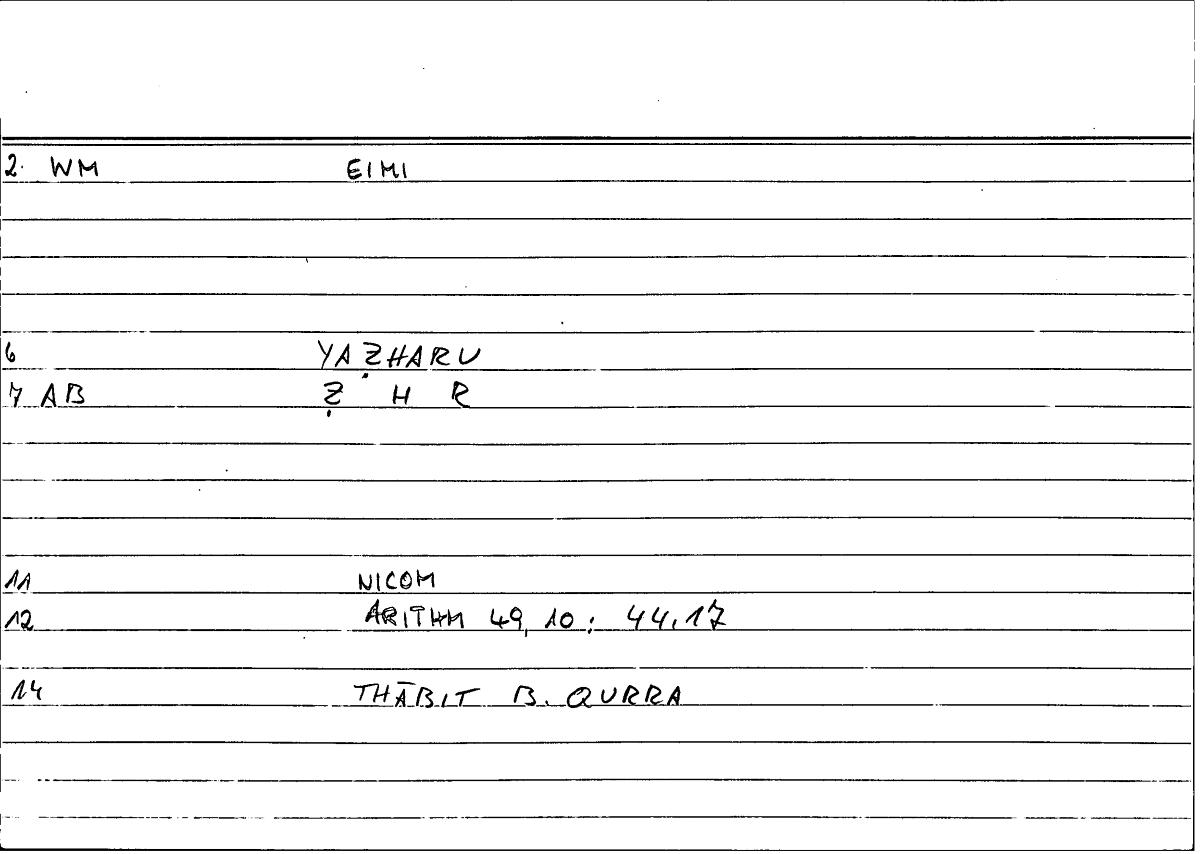 2. WM EIMI
6 YAẒHARU
7 AB Ẓ H R
11 NICOM
12 ARITHM 49,10: 44,17
14 THĀBIT B. QURRA